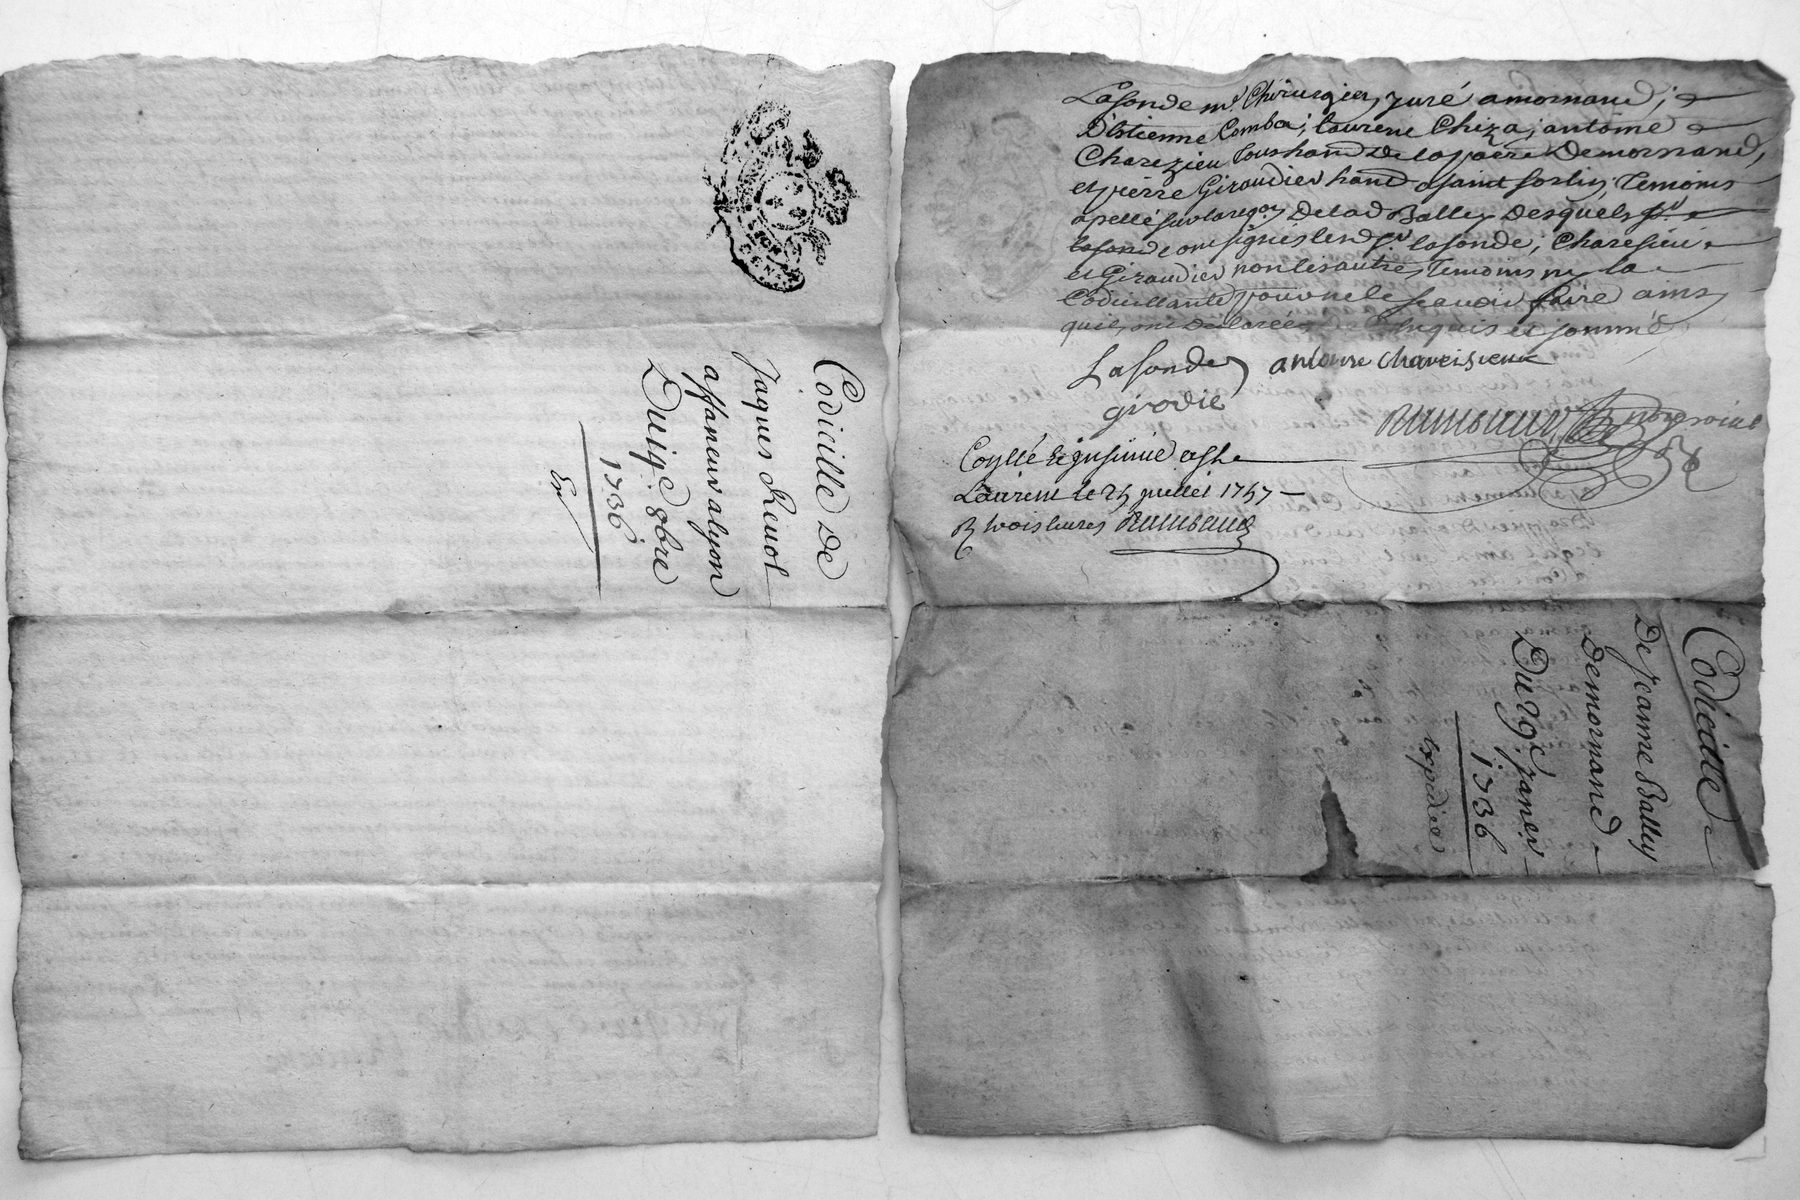 Codicille de
Jaques Revol
affaneur a lyon
Du 19e 8bre
1736
Lafonde me Chirurgien juré a mornand;
Estienne Comba; laurent Chiza; antoine
Charezieu tous habit de la parre De mornand,
et pierre Giraudier habit a saint sorlin; temoins
apellé sur la reqon De lad Balley Desquels sr
lafonde ont signés led sr lafonde; Charesieu
et Giraudier non les autres temoins ny la
Codicillante pour ne le scavoir faire ainsy
quils ont declarés De ce enquis et sommé
Lafonde antoine Chareisieux
girodie
Rambaud no.re roial
Conllé & insinué a St
Laurent le 25 juillet 1747
R trois livres Rambaud
Codicille
De Jeanne Balley
De mornand
Du 29e janer
1736
Expediée